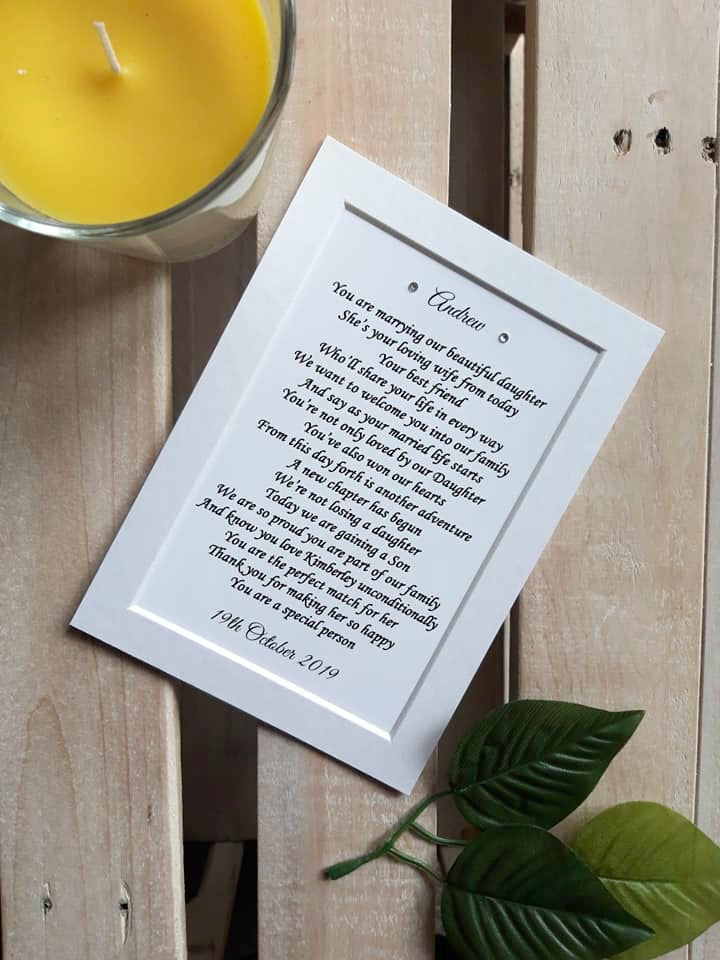 Andrew
You are marrying our beautiful daughter
She's your loving wife from today
Your best friend
Who'll share your life in every way
We want to welcome you into our family
And say as your married life starts
You're not only loved by our Daughter
You've also won our hearts
From this day forth is another adventure
A new chapter has begun
We're not losing a daughter
Today we are gaining a Son
We are so proud you are part of our family
And know you love Kimberley unconditionally
You are the perfect match for her
Thank you for making her so happy
You are a special person
19th October 2019